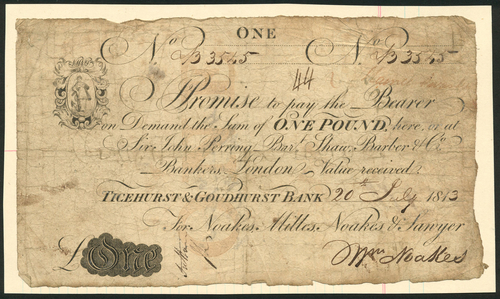 ONE
No 33545 No 33545
44
I Promise to pay the Bearer
on Demand the Sum of ONE POUND, here or at
Sir John Perring Bart. Shaw, Barber & Co.
Bankers, London Value received
TICEHURST & GOUDHURST BANK 20th July 1813
For Noakes, Milles, Noakes & Sawyer
£ One Wm Noakes